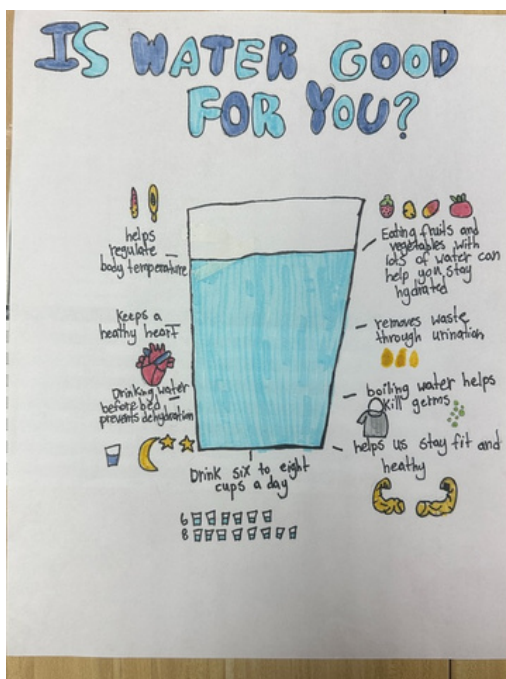 IS WATER GOOD
FOR YOU?
helps
regulate
body temperature
Keeps a
heathy heart
Drinking water
before bed
prevents dehydration
Eating fruits and
vegetables with
lots of water can
help you stay
hydrated
removes waste
through urination
boiling water helps
kill germs
helps us stay fit and
heathy
Drink six to eight
cups a day
6
8